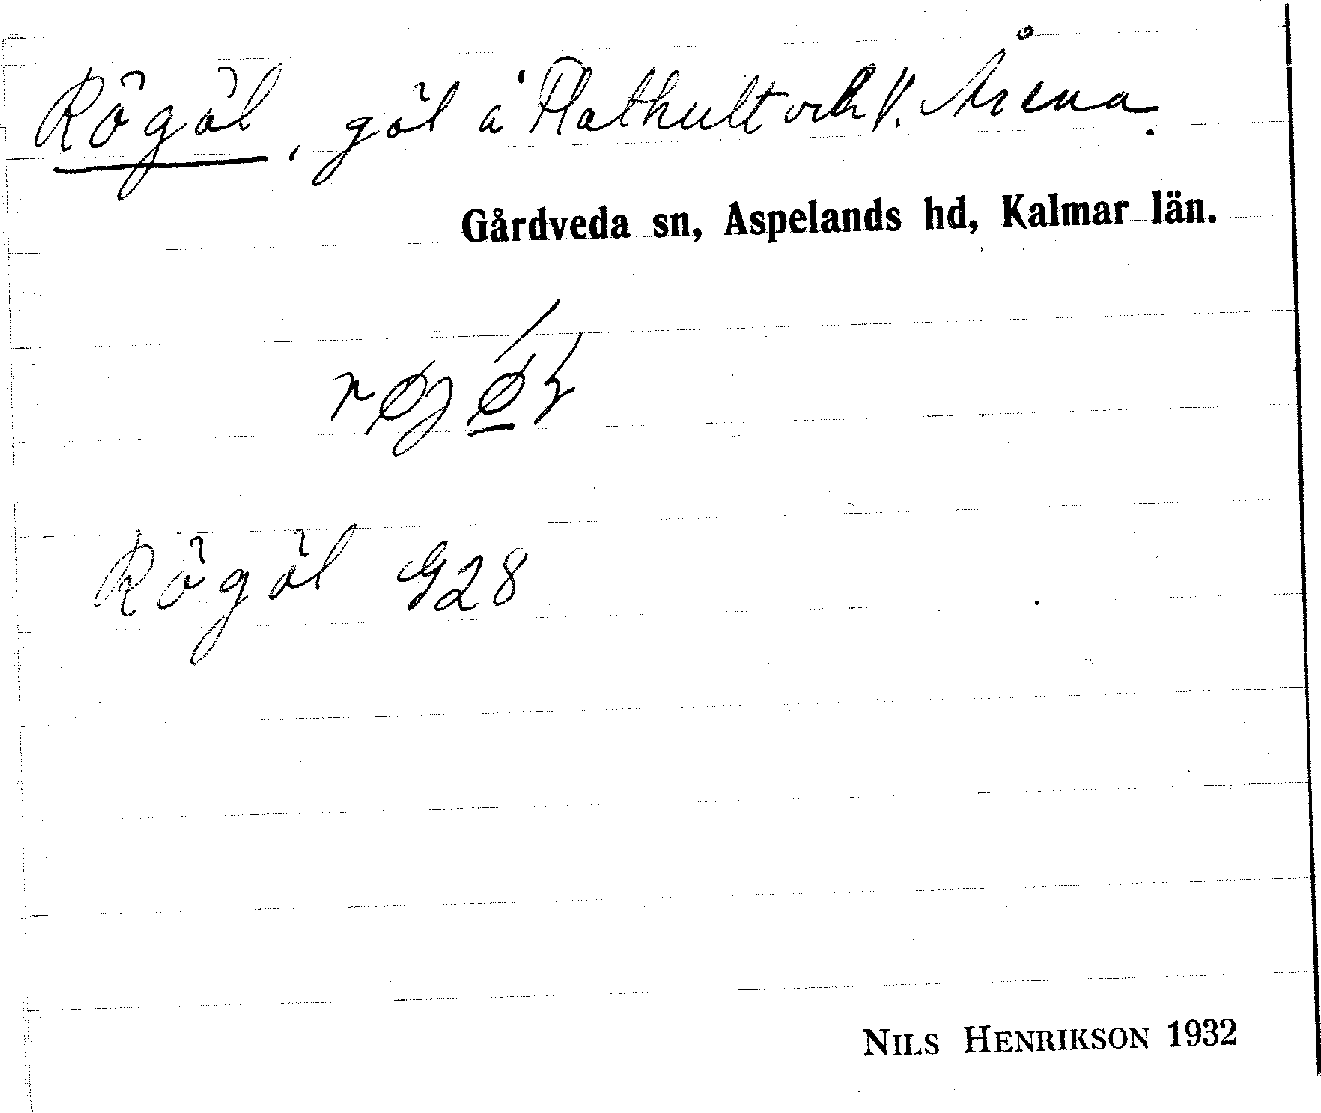 Rögöl, göl å Flathult och V. Årena.
Gårdveda sn, Aspelands hd, Kalmar län.
Rögöl G28
NILS HENRIKSON 1932